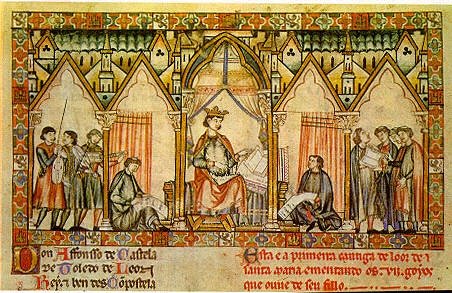 Don Affonso de Castela
de Toledo de Leon
Rey e ben des Conpostela
Esta e a primeira cantiga de loor de
santa maria ementando os .vii. goyos
que ouve de seu fillo.